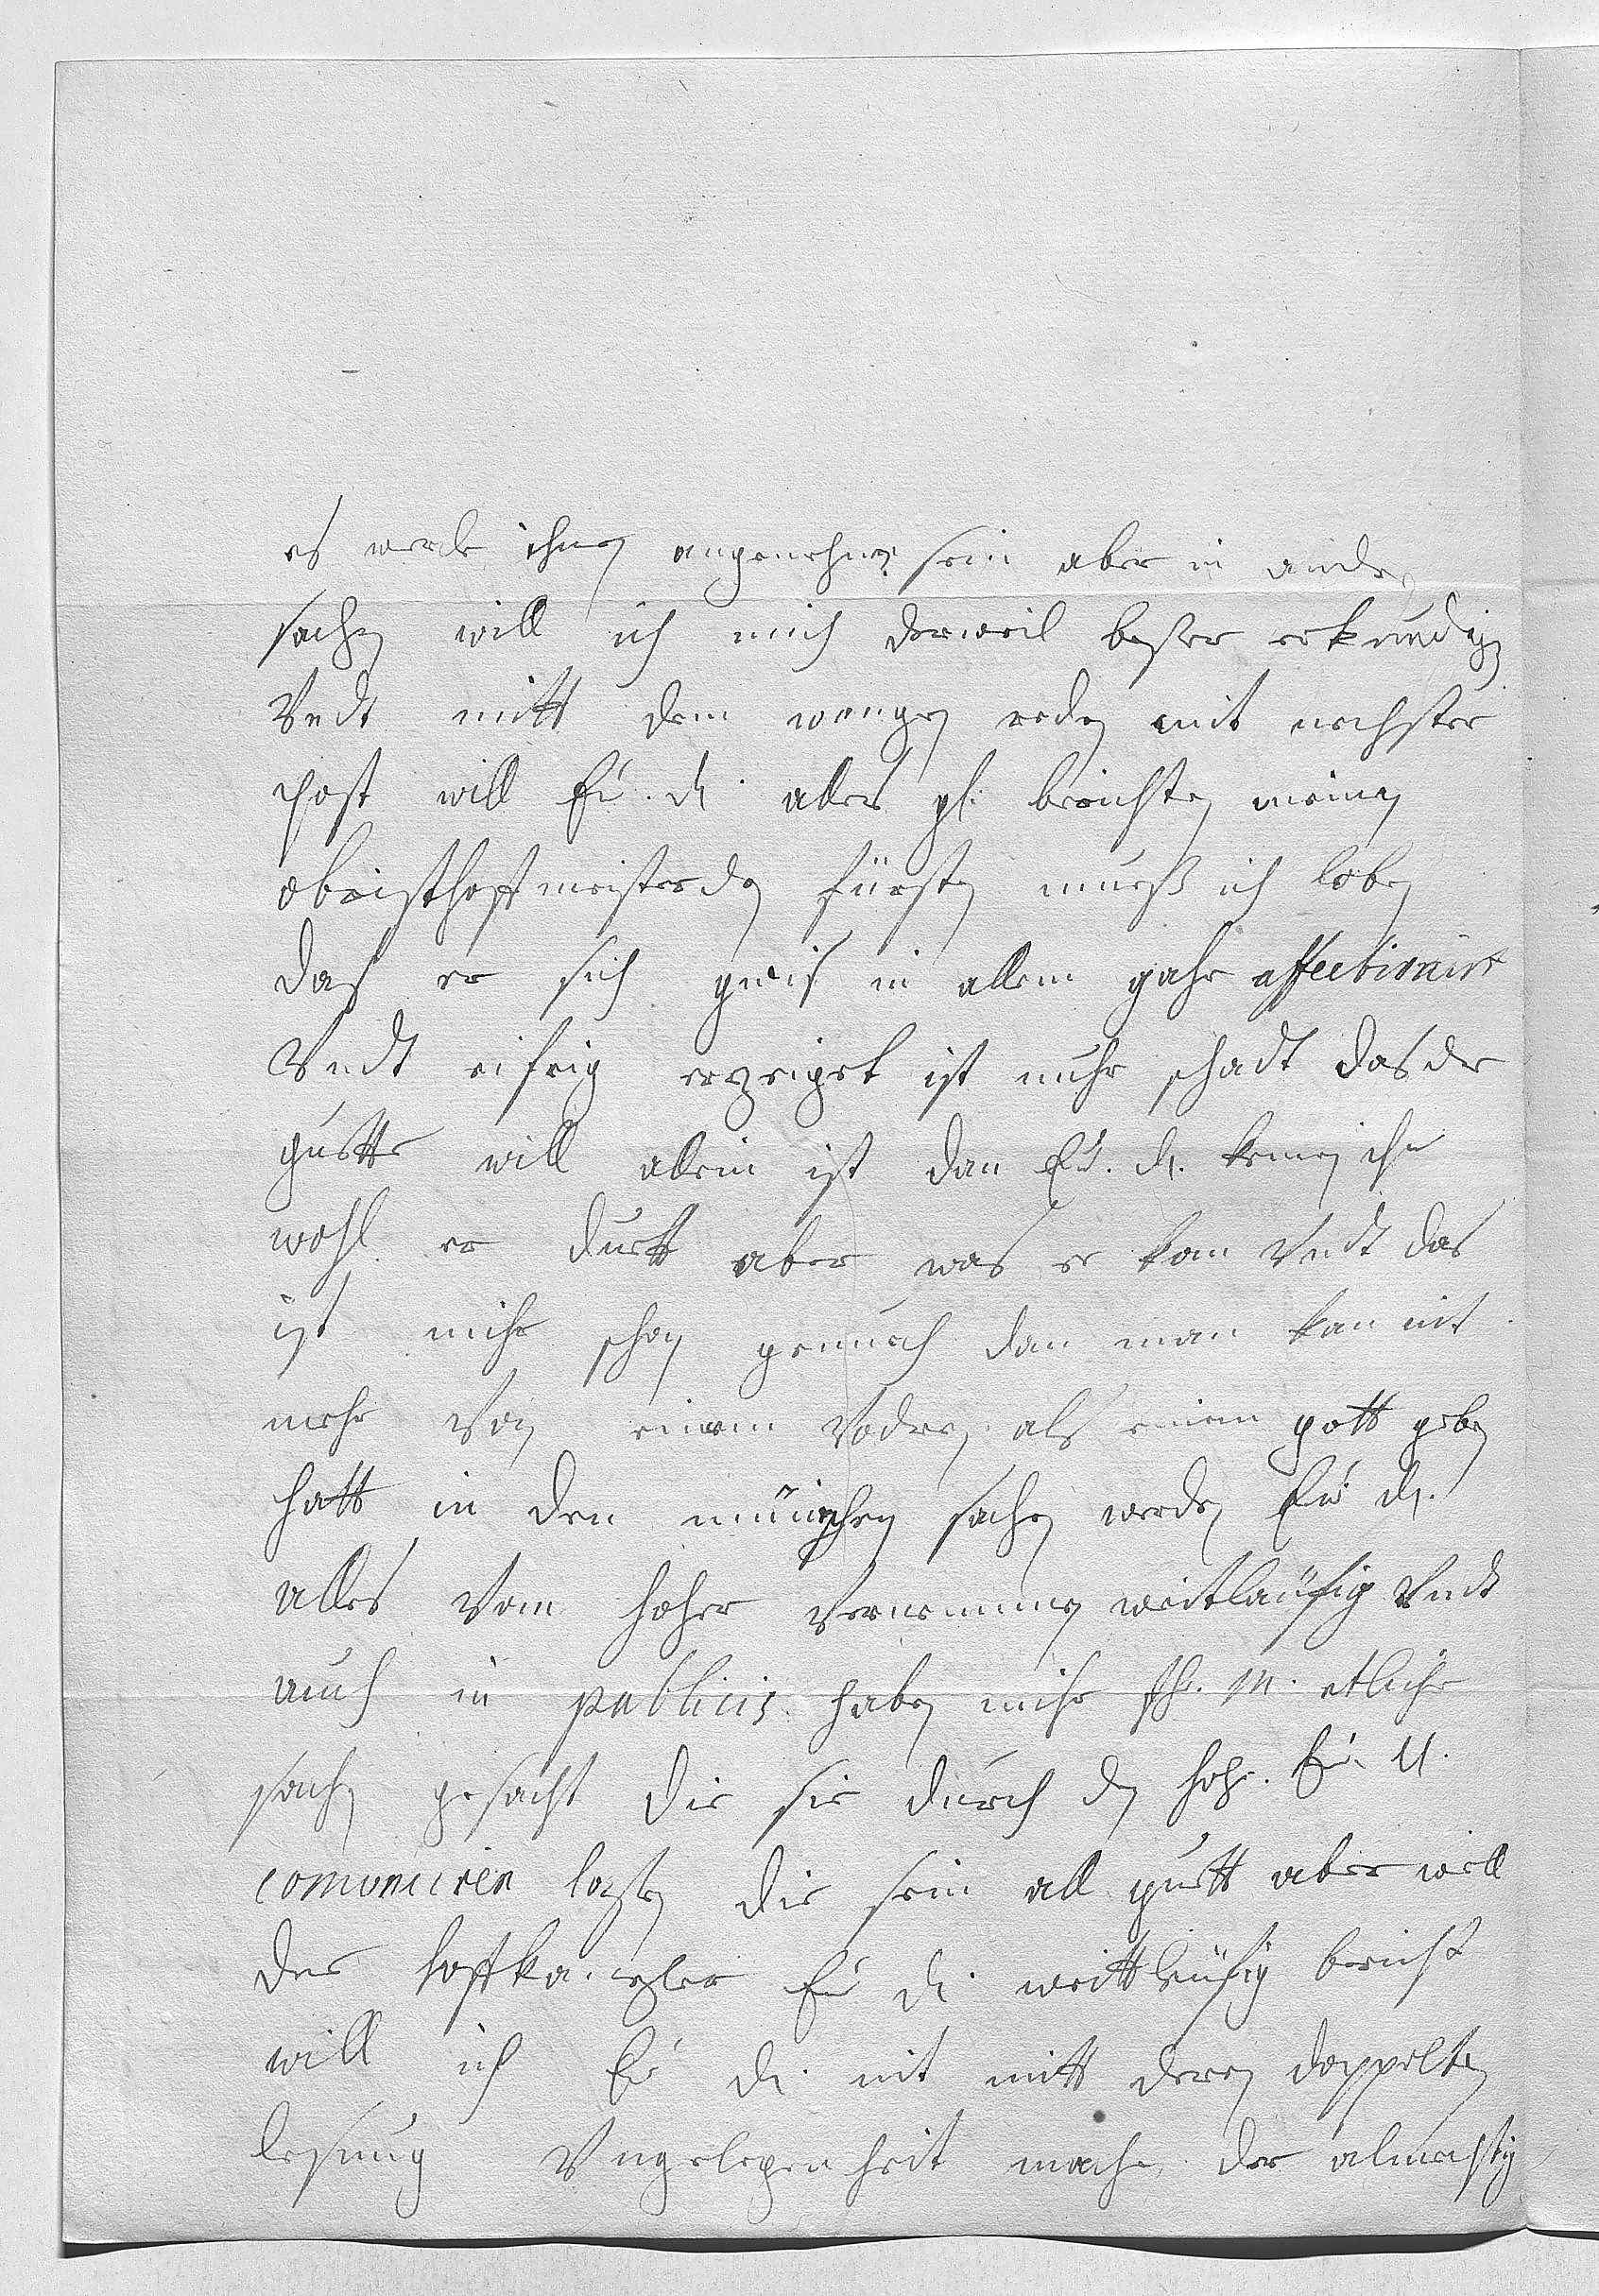 es werde ihnen angenehm sein aber in andern
sachen will ich mich derweil besser erkundigen
Vndt mitt dem wenigen reden mit nechster
post will Eu. dl. alles gh. berichten meinen
obristhoffmeister den fürsten mueß ich loben
das er sich gwis in allem gahr affectionirt
Vndt eifrig erzeiget ist nuhr schadt das der
guette will allein ist dan Eu. dl. kennen ihn
wohl er duett aber was er kan Vndt das
ist mihr schon genuech dan man kan nit
mehr von einem Vodren als einem gott geben
hatt in den münichen sachen werden Eu. dl.
alles vom hoher vernemmen weitläufig Vndt
auch in publicis haben mihr Ih. M. etliche
sachen gesacht die sie durch den hoh. Eu. dl.
comoniciren lassen die sein all guett aber weill
der hoffkanzler Eu dl. weittleüfig bericht
will ich Eu dl. nit mitt deren doppelten
lesung Vngelegenheit machen der almechtig